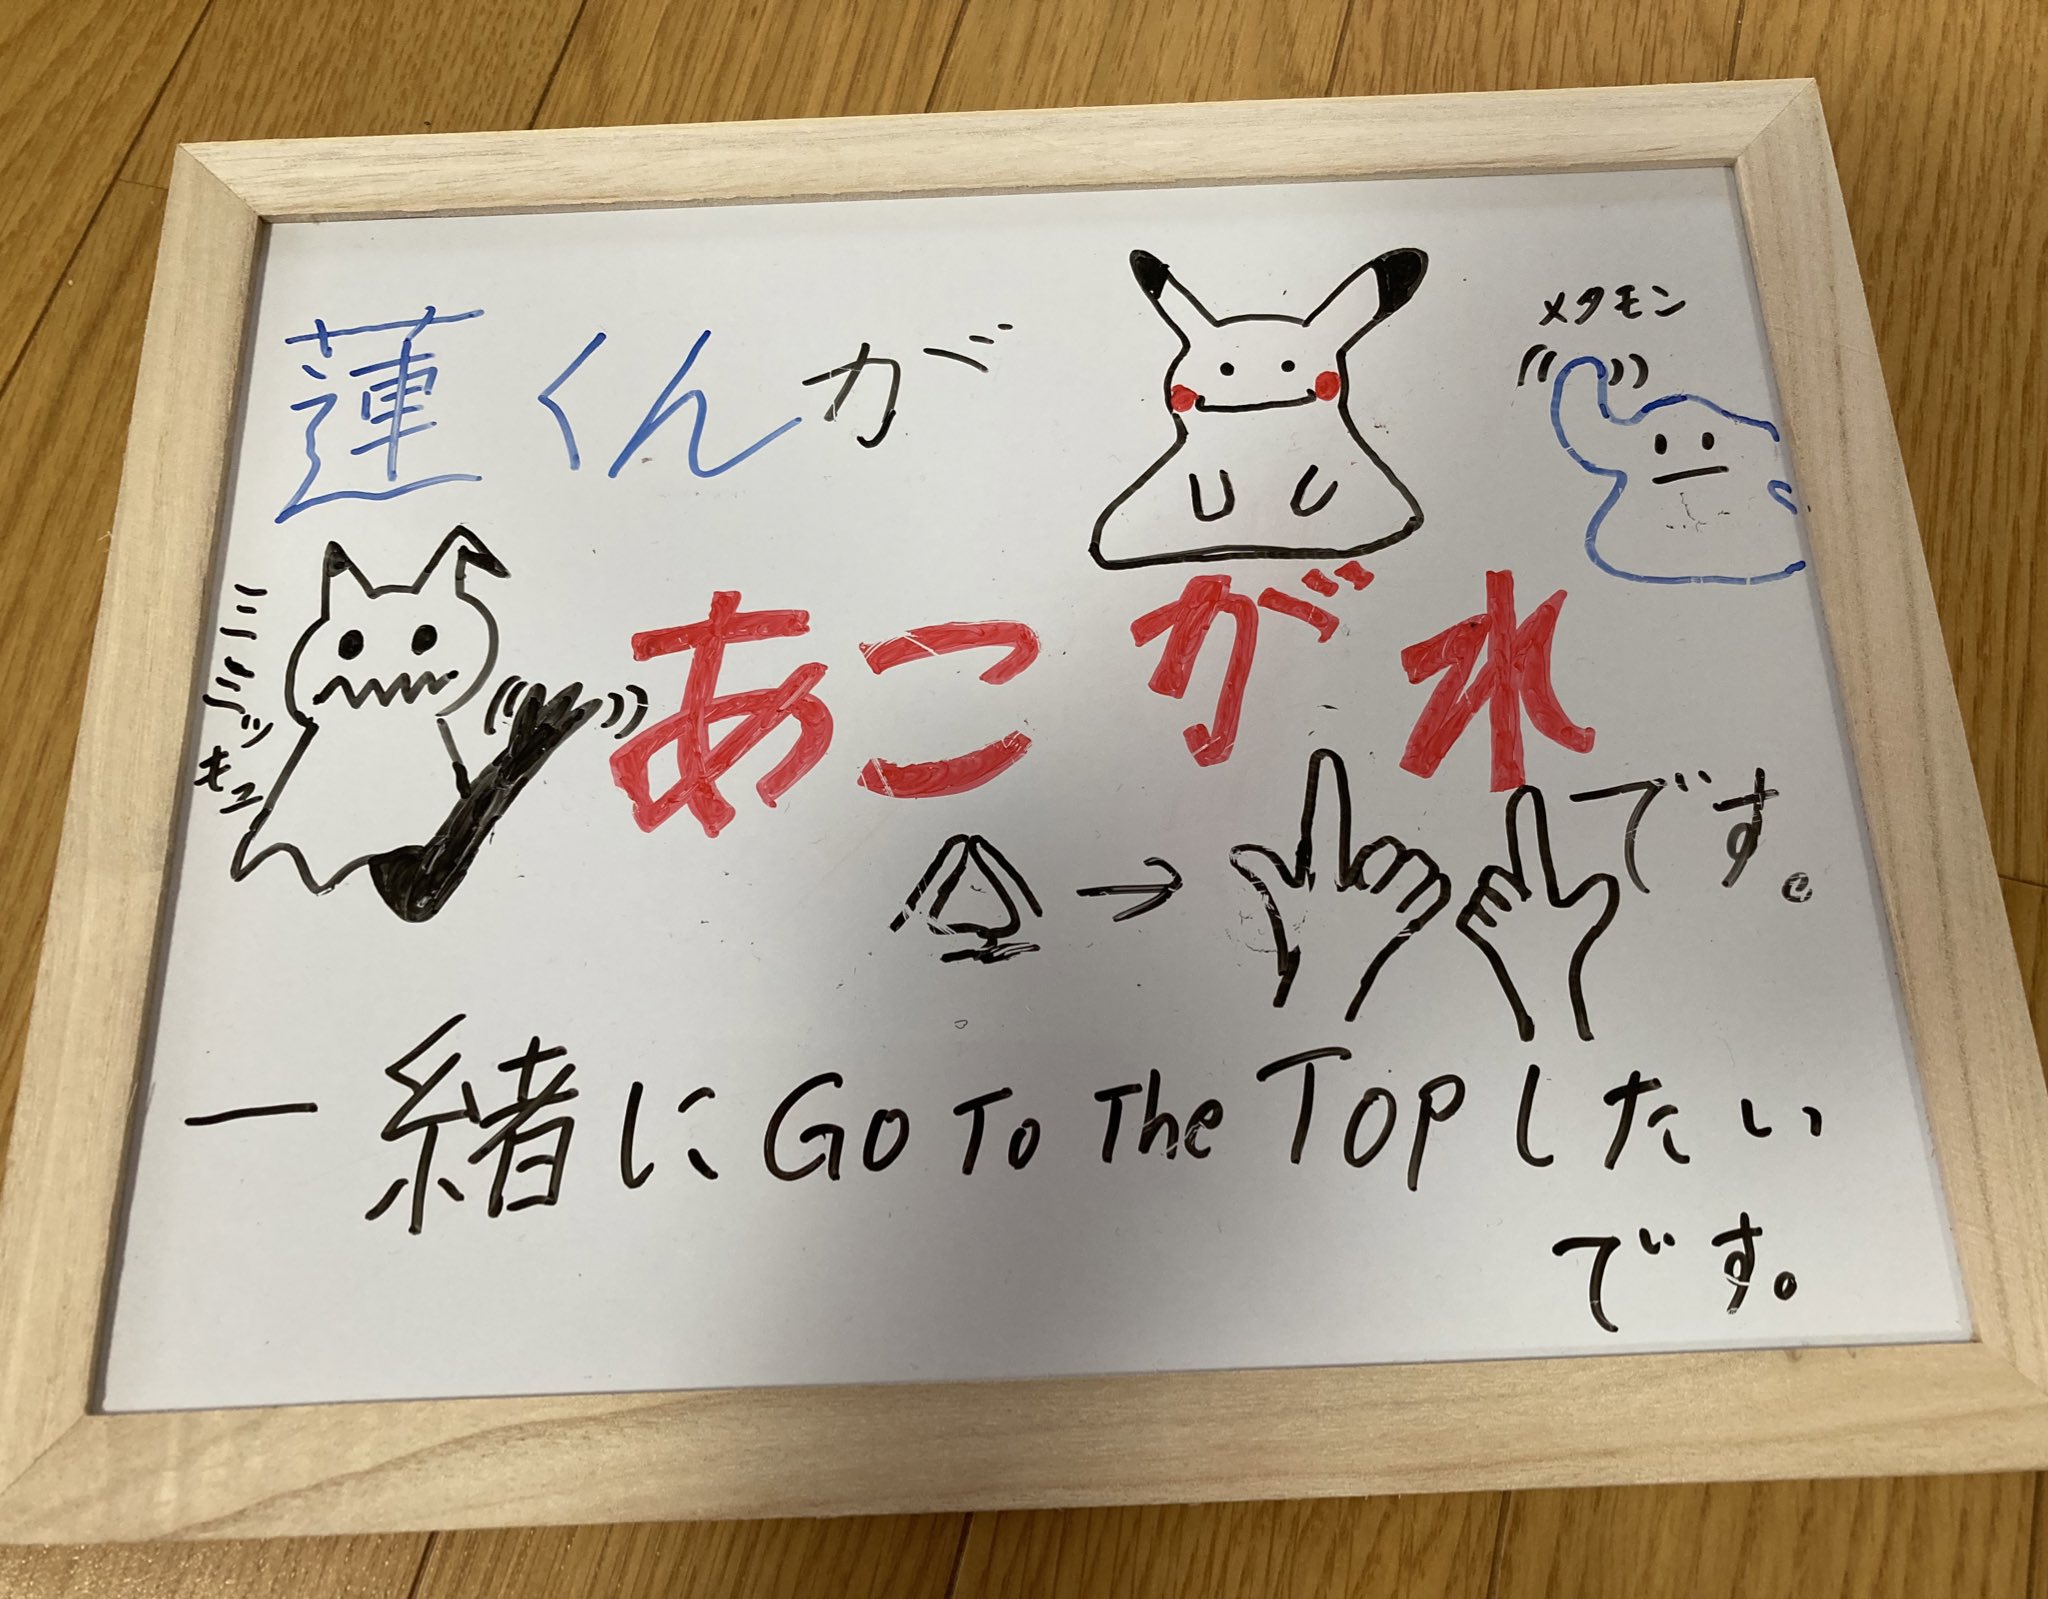 蓮くんが
メタモン
ミミッキュ
あこがれ
です。
一緒にGo To The Topしたい
です。